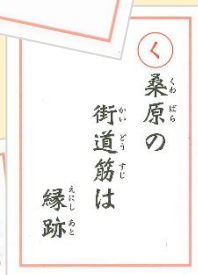 く
桑原の
街道筋は
縁跡
くわ ばら
かい どう すじ
えにし あと